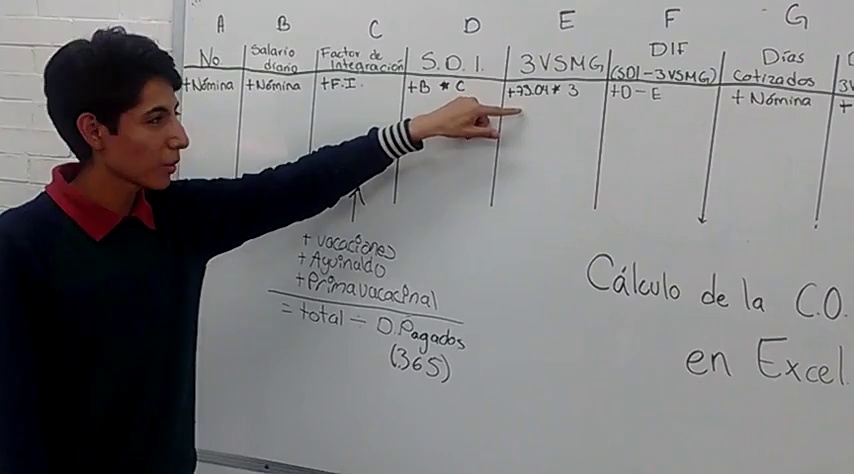 A B C D E F G
No
Salario
diario
Factor de
integración
S.D.I.
3VSMG
DIF
(SDI-3VSMG)
Días
cotizados
3V
+Nómina
+Nómina
+F.I.
+B * C
+73.04 * 3
+D-E
+ Nómina
+
+ vacaciones
+ Aguinaldo
+ Prima vacacinal
= total ÷ D. Pagados
(365)
Cálculo de la C.O.
en Excel.